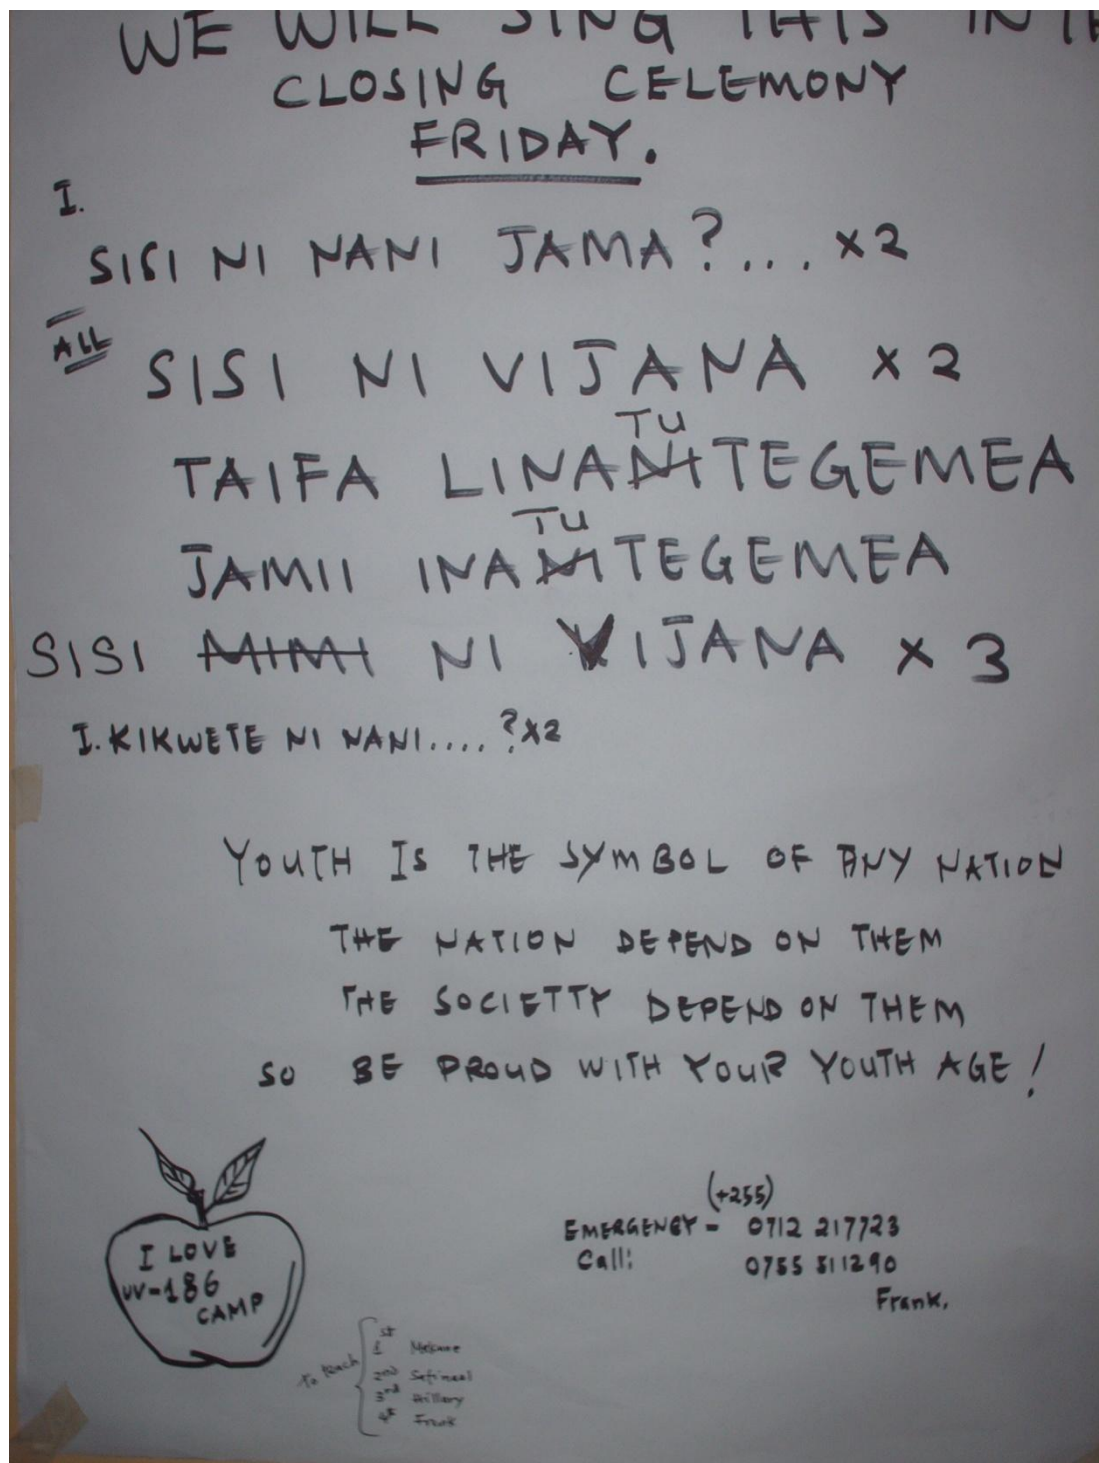 WE WILL SING THIS IN THE
CLOSING CELEMONY
FRIDAY.
I.
SISI NI NANI JAMA?... x2
ALL SISI NI VIJANA x 2
TU
TAIFA LINANITEGEMEA
TU
JAMII INANITEGEMEA
SISI MIMI NI VIJANA x 3
I. KIKWETE NI NANI....? x2
YOUTH IS THE SYMBOL OF ANY NATION
THE NATION DEPEND ON THEM
THE SOCIETTY DEPEND ON THEM
SO BE PROUD WITH YOUR YOUTH AGE!
(+255)
EMERGENCY - 0712 217723
Call: 0755 511290
Frank.
I LOVE
UV-186
CAMP
To teach
1st
2nd
3rd Hillary
4th Frank